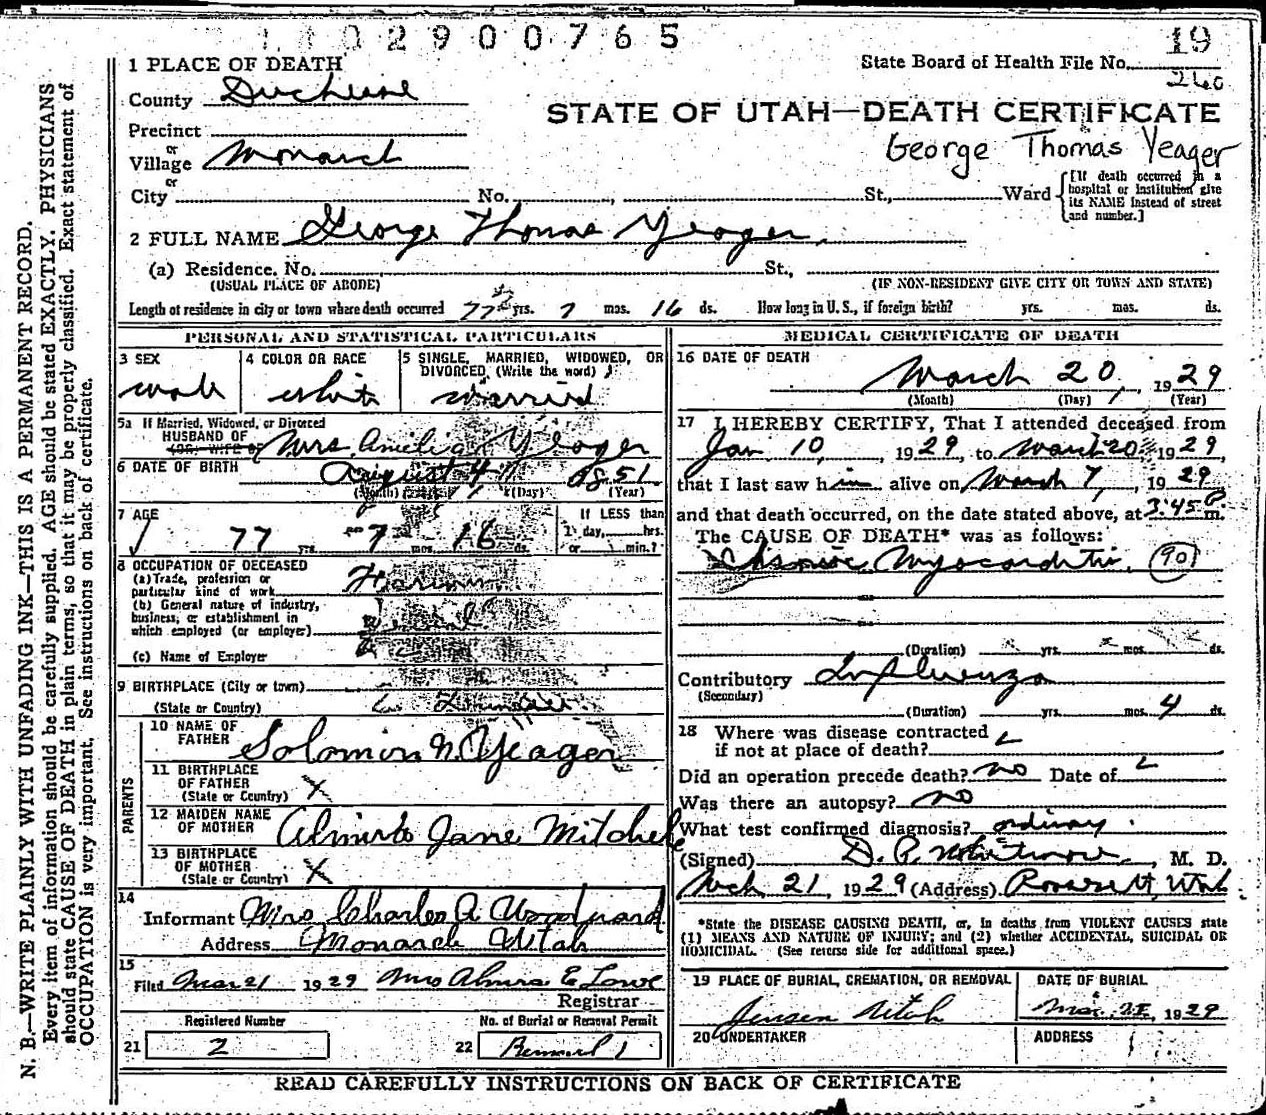 1 1 0 2 9 0 0 7 6 5
19
1 PLACE OF DEATH
State Board of Health File No.
260
County Duchesne
STATE OF UTAH—DEATH CERTIFICATE
Precinct
or
George Thomas Yeager
Village Monarch
or
City No. , St., Ward
[If death occurred in a
hospital or institution give
its NAME instead of street
and number.]
2 FULL NAME George Thomas Yeager
(a) Residence. No. , St.,
(USUAL PLACE OF ABODE) (IF NON-RESIDENT GIVE CITY OR TOWN AND STATE)
Length of residence in city or town where death occurred 77 yrs. 7 mos. 16 ds. How long in U. S., if foreign birth? yrs. mos. ds.
PERSONAL AND STATISTICAL PARTICULARS
3 SEX
male
4 COLOR OR RACE
white
5 SINGLE, MARRIED, WIDOWED, OR
DIVORCED, (Write the word)
married
5a If Married, Widowed, or Divorced
HUSBAND OF
(OR) WIFE OF Mrs. Amelia Yeager
6 DATE OF BIRTH August 4 1851
(Month) (Day) (Year)
7 AGE
77 yrs. 7 mos. 16 ds.
If LESS than
1 day, hrs.
or min.?
8 OCCUPATION OF DECEASED
(a) Trade, profession or
particular kind of work
(b) General nature of industry,
business, or establishment in
which employed (or employer)
(c) Name of Employer
9 BIRTHPLACE (City or town)
(State or Country)
PARENTS
10 NAME OF
FATHER Solomon N. Yeager
11 BIRTHPLACE
OF FATHER
(State or Country) X
12 MAIDEN NAME
OF MOTHER Jane Mitchell
13 BIRTHPLACE
OF MOTHER
(State or Country) X
14
Informant Mrs Charles A Woodward
Address Monarch Utah
15
Filed Mar 21 1929 Mrs Almira E Lowe
Registrar
Registered Number
21 2
No. of Burial or Removal Permit
22 1
MEDICAL CERTIFICATE OF DEATH
16 DATE OF DEATH
March 20, 1929
(Month) (Day) (Year)
17 I HEREBY CERTIFY, That I attended deceased from
Jan 10, 1929, to March 20, 1929,
that I last saw him alive on March 7, 1929
and that death occurred, on the date stated above, at 3:45 P m.
The CAUSE OF DEATH* was as follows:
Chronic Myocarditis. 90
(Duration) yrs. mos. ds.
Contributory Influenza
(Secondary)
(Duration) yrs. mos. 4 ds.
18 Where was disease contracted
if not at place of death?
Did an operation precede death? no Date of
Was there an autopsy? no
What test confirmed diagnosis? ordinary
(Signed) D. P. Whitmore, M. D.
Mch 21, 1929 (Address) Roosevelt, Utah.
*State the DISEASE CAUSING DEATH, or, in deaths from VIOLENT CAUSES state
(1) MEANS AND NATURE OF INJURY; and (2) whether ACCIDENTAL, SUICIDAL OR
HOMICIDAL. (See reverse side for additional space.)
19 PLACE OF BURIAL, CREMATION, OR REMOVAL
Jensen Utah
DATE OF BURIAL
Mar. 1929
20 UNDERTAKER
ADDRESS
READ CAREFULLY INSTRUCTIONS ON BACK OF CERTIFICATE
N. B.—WRITE PLAINLY WITH UNFADING INK—THIS IS A PERMANENT RECORD.
Every item of information should be carefully supplied. AGE should be stated EXACTLY. PHYSICIANS
should state CAUSE OF DEATH in plain terms, so that it may be properly classified. Exact statement of
OCCUPATION is very important. See instructions on back of certificate.